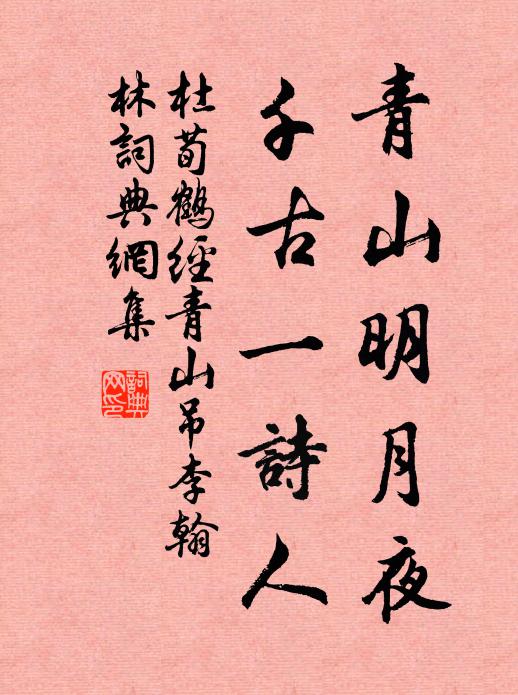 青山明月夜
千古一詩人
杜荀鶴經青山吊李翰
林詞典網集
詞典网印